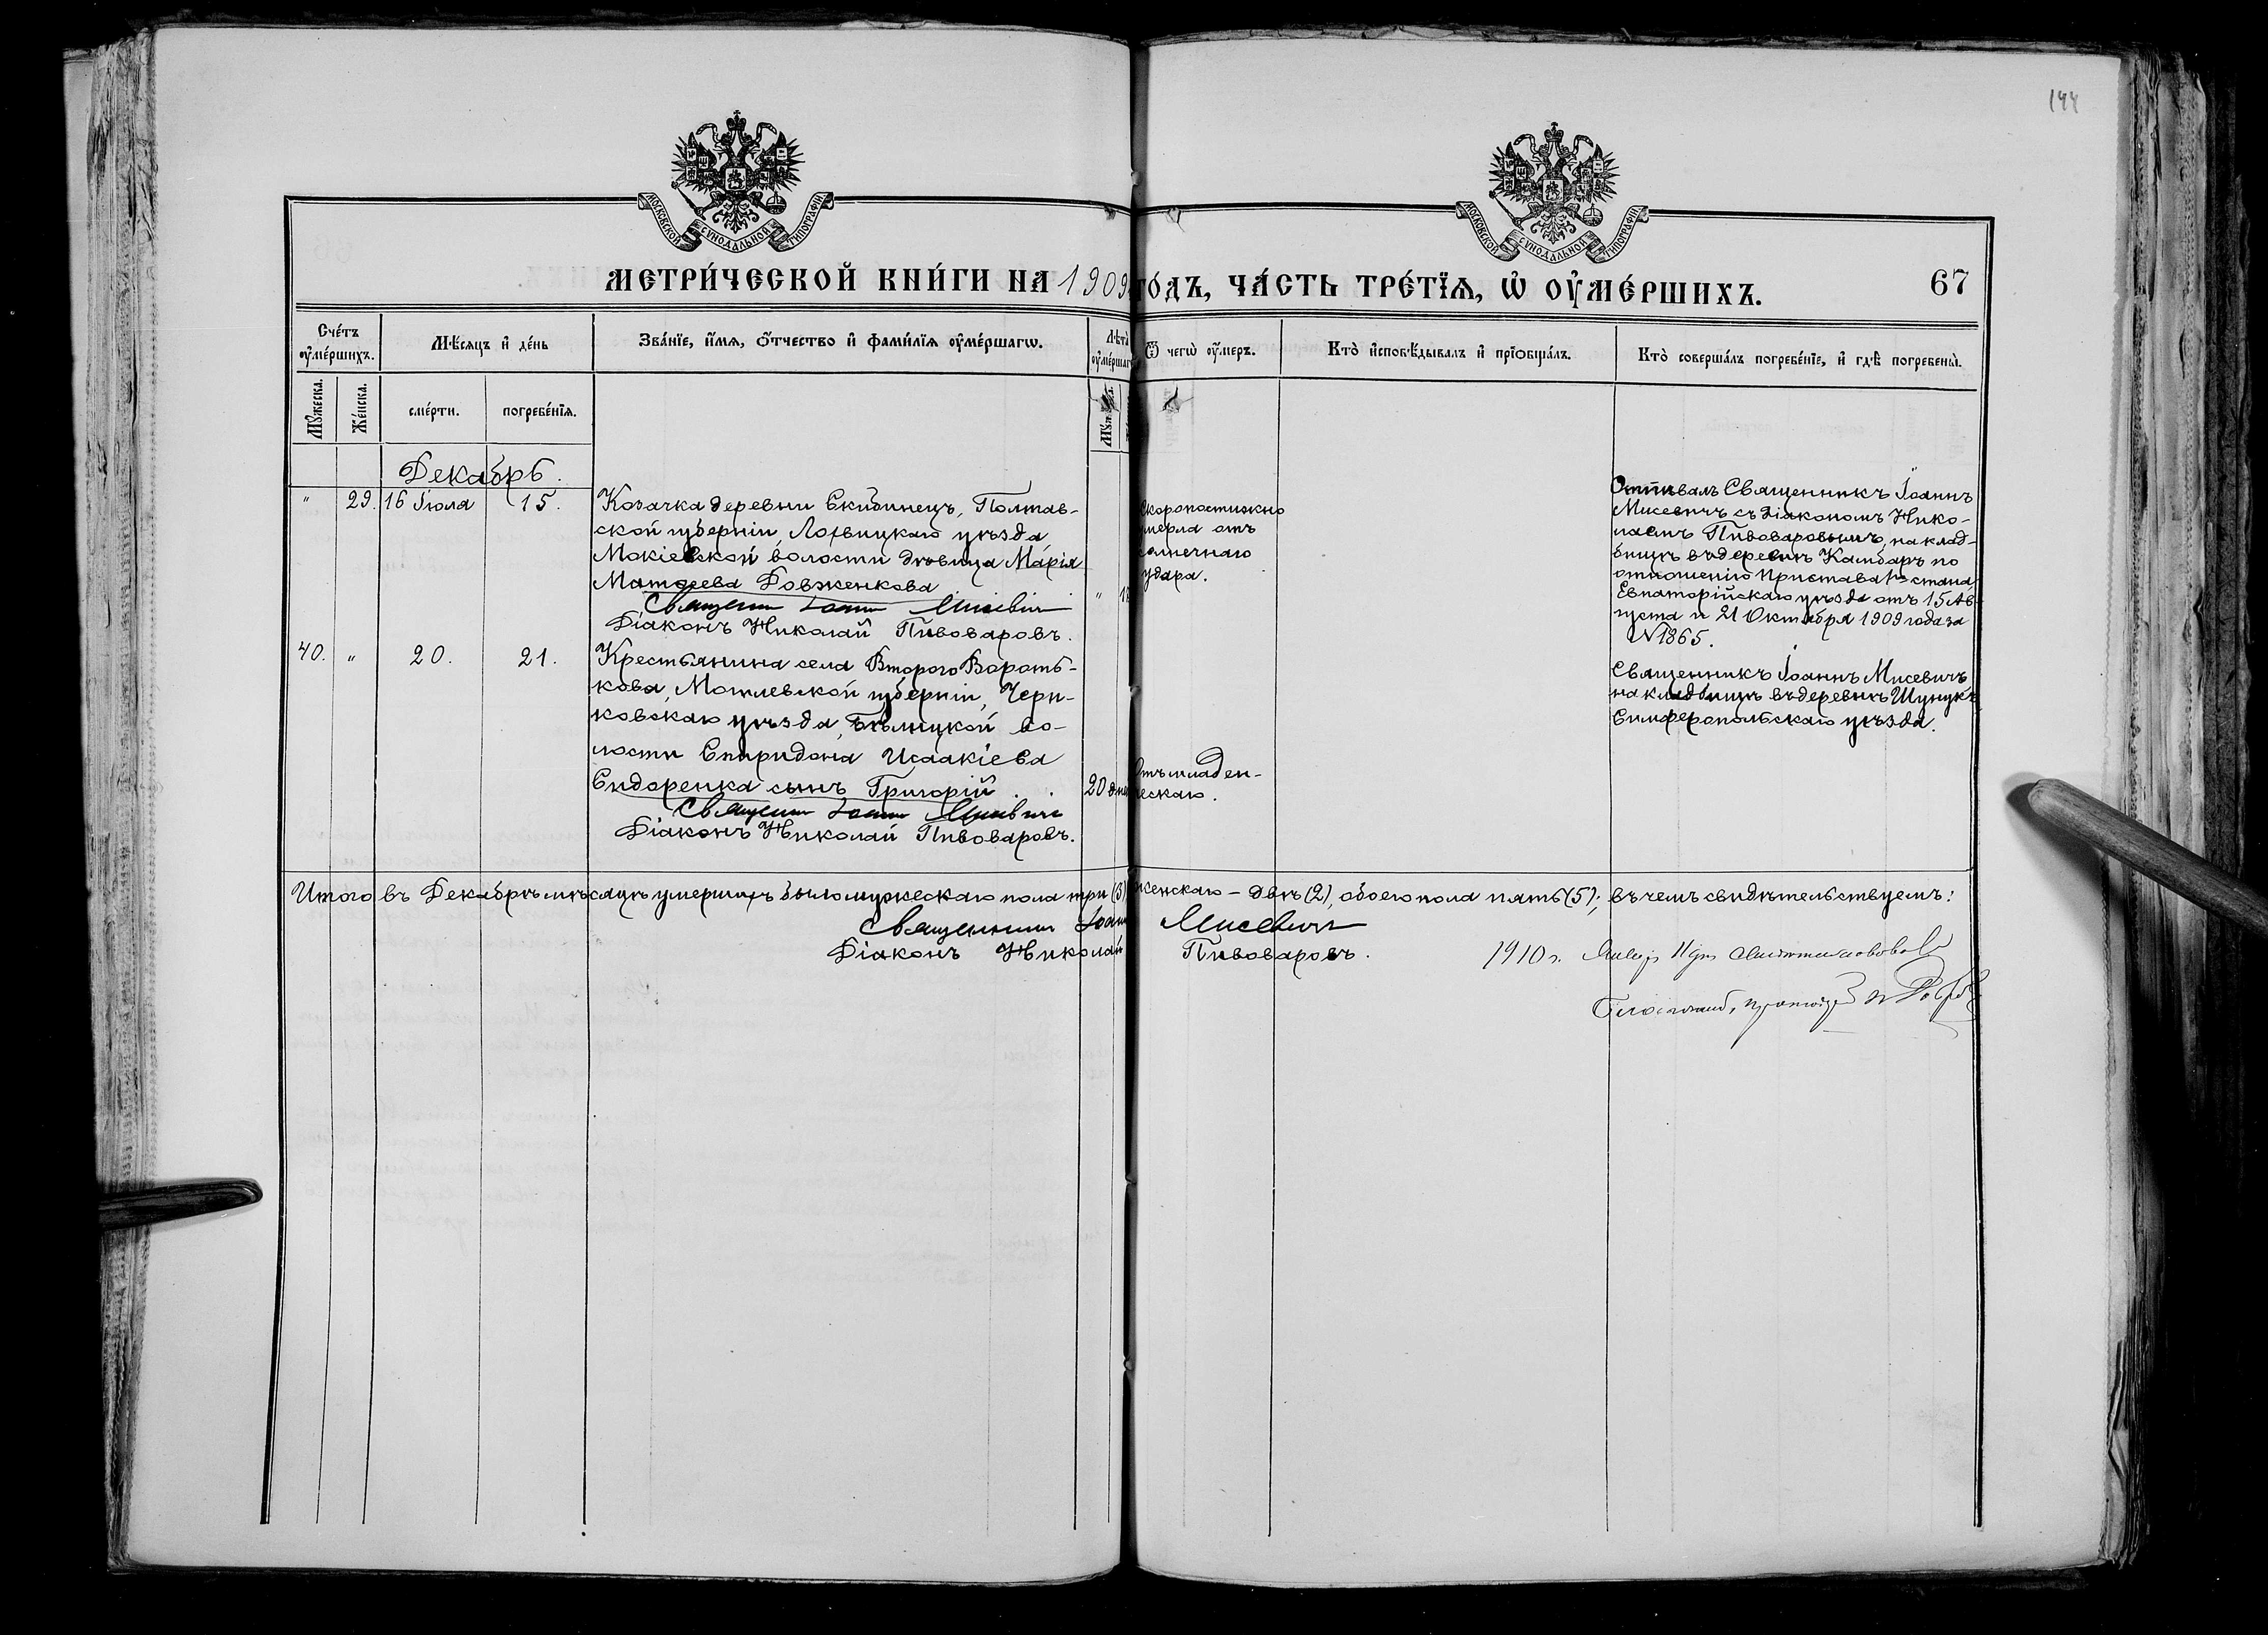 144
МОСКОВСКОЙ СУНОДАЛЬНОЙ ТИПОГРАФІИ
МОСКОВСКОЙ СУНОДАЛЬНОЙ ТИПОГРАФІИ
МЕТРИ́ЧЕСКОЙ КНИ́ГИ НА 1909 ГО́ДЪ, ЧА́СТЬ ТРЕ́ТЇѦ, Ѽ ОУ҆МЕ́РШИХЪ.
67
Сче́тъ оу҆ме́ршихъ.
Мѣ́сяцъ и҆ де́нь
Зва́нїе, и҆́мѧ, ѻ҆́тчество и҆ фами́лїѧ оу҆ме́ршагѡ.
Лѣта̀ оу҆ме́ршагѡ
Ѿ чегѡ̀ оу҆́меръ.
Кто̀ и҆сповѣ́дывалъ и҆ прїѻбща́лъ.
Кто̀ соверша́лъ погребе́нїе, и҆ гдѣ̀ погребены̀.
Мꙋ́жеска.
Же́нска.
сме́рти.
погребе́нїѧ.
Декабрь.
"
29.
16 Іюла
15.
Козачка деревни Скибинецъ, Полтав-
ской губерніи, Лохвицкаго уѣзда,
Мокіевской волости дѣвица Марія
Матѳеева Довженкова
Священникъ Іоаннъ Мисевичъ
Діаконъ Николай Пивоваровъ.
"
18
Скоропостижно
умерла отъ
солнечнаго
удара.
Отпѣвалъ Священникъ Іоаннъ
Мисевичъ съ діакономъ Нико-
лаемъ Пивоваровымъ, на клад-
бищѣ въ деревнѣ Камбаръ по
отношенію Пристава 1го стана
Евпаторійскаго уѣзда отъ 15 Ав-
густа и 21 Октября 1909 года за
№ 1865.
40.
"
20.
21.
Крестьянина села Второго Вороть-
кова, Могилевской губерніи, Чери-
ковскаго уѣзда, Бѣлицкой во-
лости Спиридона Исаакіева
Сидоренка сынъ Григорій . .
Священникъ Іоаннъ Мисевичъ
Діаконъ Николай Пивоваровъ.
20 дней
Отъ младен-
ческаго.
Священникъ Іоаннъ Мисевичъ
на кладбищѣ въ деревнѣ Шунукъ
Симферопольскаго уѣзда.
Итого въ Декабрѣ мѣсяцѣ умершихъ было мужескаго пола три (3) женскаго – двѣ (2), обоего пола пять (5); въ чемъ свидѣтельствуемъ:
Священникъ Іоаннъ Мисевичъ
Діаконъ Николай Пивоваровъ.
1910 г.